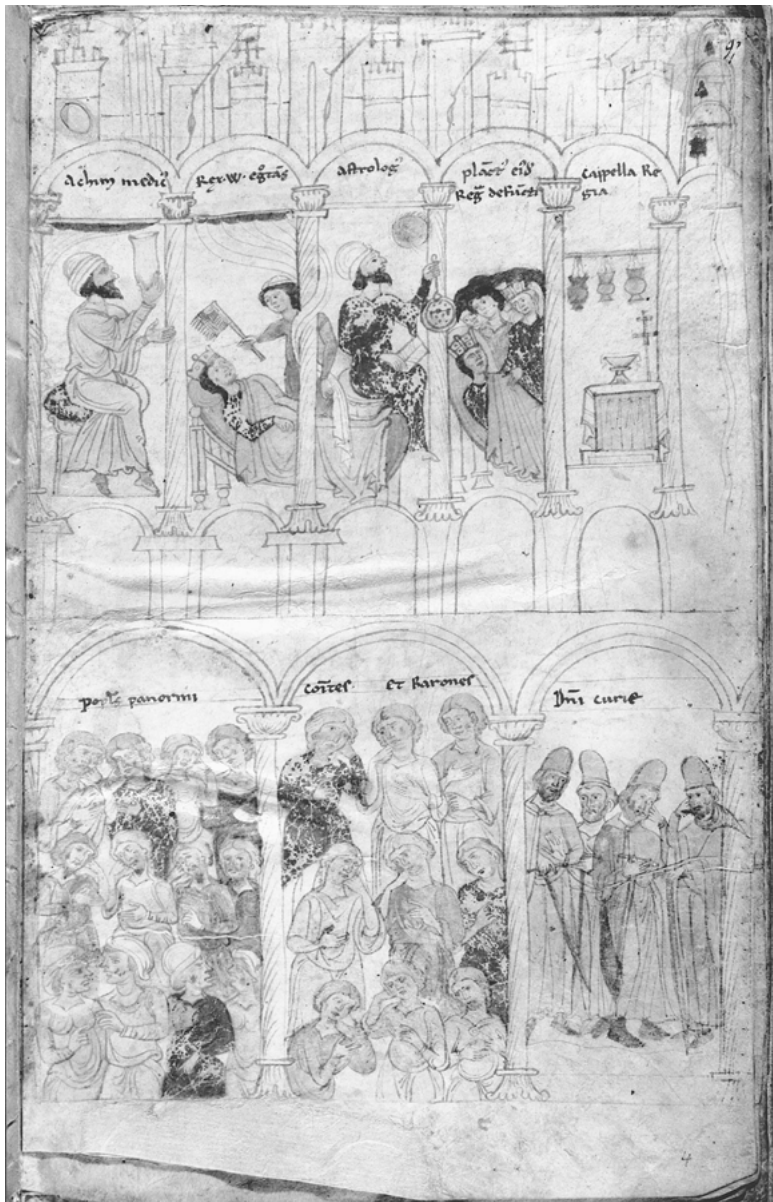 97
Achim medicꝰ
Rex .W. eg̊tās
Astrologꝰ
plāctꝰ eiꝰd̄
Reḡ defūcti
Cappella Re
gia
Popłs panormi
Coītes et Barones
Dn̄i curie
4